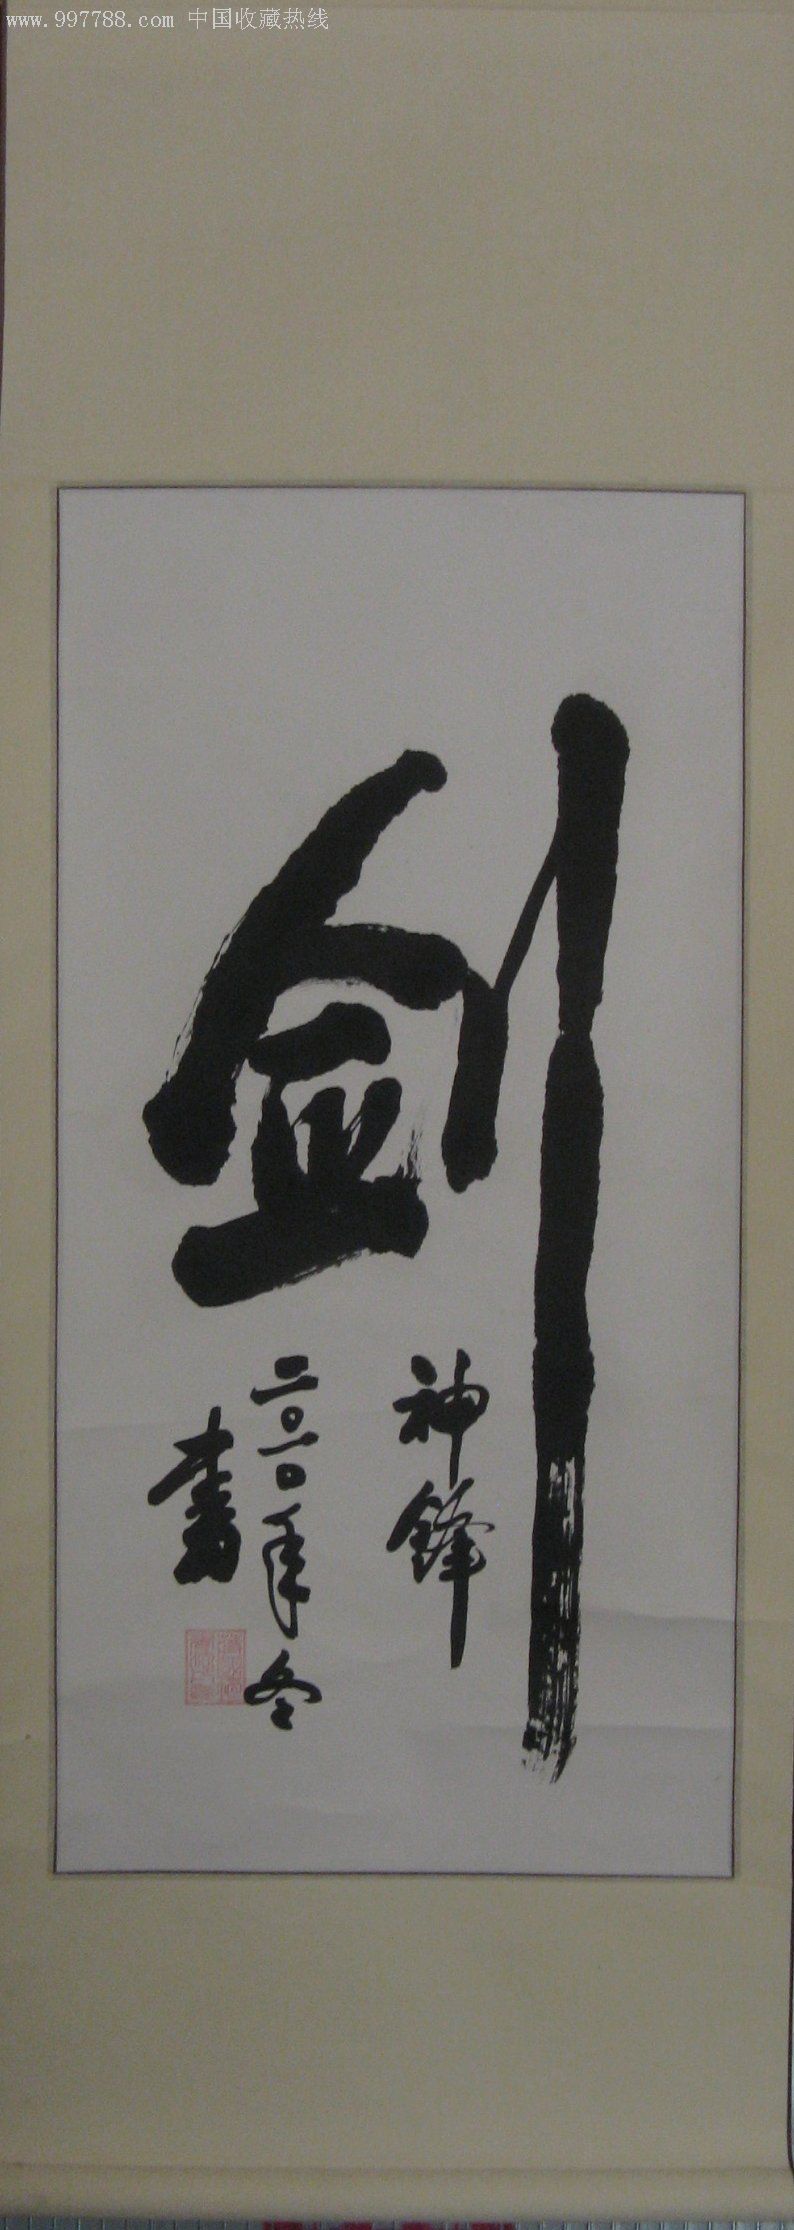 www.997788.com 中国收藏热线
剑
神锋
二〇一〇年冬
书